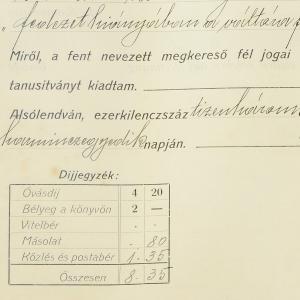 „fedezet hiányában a váltóra
Miről, a fent nevezett megkereső fél jogai
tanusitványt kiadtam.
Alsólendván, ezerkilenczszáz tizenhárom
harminczegyedik napján.
Díjjegyzék:
Óvásdíj 4 20
Bélyeg a könyvön 2 —
Vitelbér . .
Másolat . 80
Közlés és postabér 1. 35
Összesen 8. 35